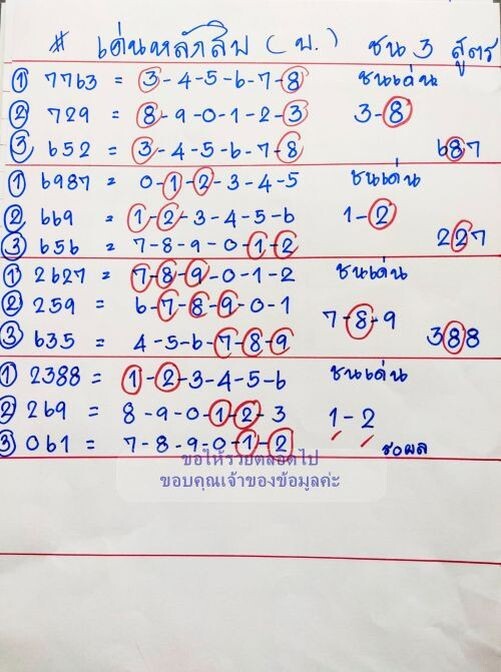 # เด่นหลักสิบ (บ.) ชน 3 สูตร
① 7763 = 3-4-5-6-7-8 ชนเด่น
② 729 = 8-9-0-1-2-3 3-8
③ 652 = 3-4-5-6-7-8 687
① 6987 = 0-1-2-3-4-5 ชนเด่น
② 669 = 1-2-3-4-5-6 1-2
③ 656 = 7-8-9-0-1-2 227
① 2627 = 7-8-9-0-1-2 ชนเด่น
② 259 = 6-7-8-9-0-1 7-8-9
③ 635 = 4-5-6-7-8-9 388
① 2388 = 1-2-3-4-5-6 ชนเด่น
② 269 = 8-9-0-1-2-3 1-2
③ 061 = 7-8-9-0-1-2 รอผล
ขอให้รวยตลอดไป
ขอบคุณเจ้าของข้อมูลค่ะ